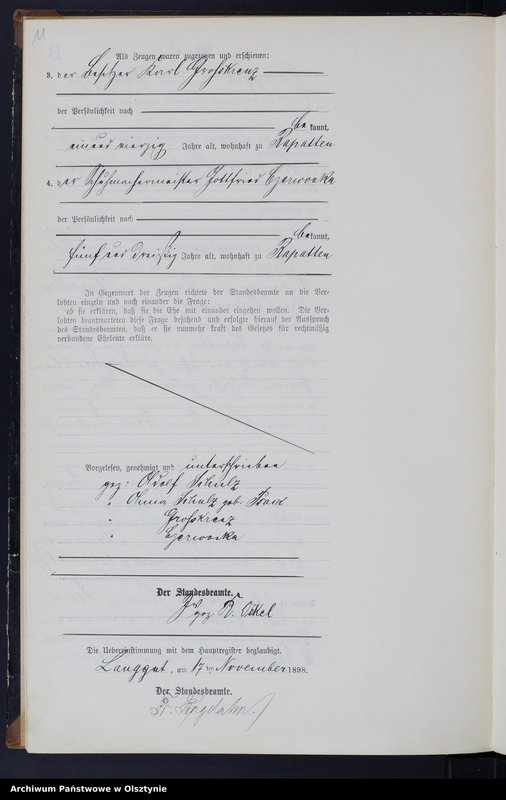 11
Als Zeugen waren zugezogen und erschienen:
3. der Besitzer Karl Großkreuz
der Persönlichkeit nach
bekannt,
einundvierzig Jahre alt, wohnhaft zu Rapatten
4. der Schuhmachermeister Gottfried Czerwonka
der Persönlichkeit nach
bekannt,
fünfunddreißig Jahre alt, wohnhaft zu Rapatten
In Gegenwart der Zeugen richtete der Standesbeamte an die Ver-
lobten einzeln und nach einander die Frage:
ob sie erklären, daß sie die Ehe mit einander eingehen wollen. Die Ver-
lobten beantworteten diese Frage bejahend und erfolgte hierauf der Ausspruch
des Standesbeamten, daß er sie nunmehr kraft des Gesetzes für rechtmäßig
verbundene Eheleute erkläre.
Vorgelesen, genehmigt und unterschrieben
gez: Adolf Schulz
" Anna Schulz geb.
" Großkreuz
" Czerwonka
Der Standesbeamte.
gez R.
Die Uebereinstimmung mit dem Hauptregister beglaubigt.
Langgut, am 17 ten November 1898.
Der Standesbeamte.
Archiwum Państwowe w Olsztynie